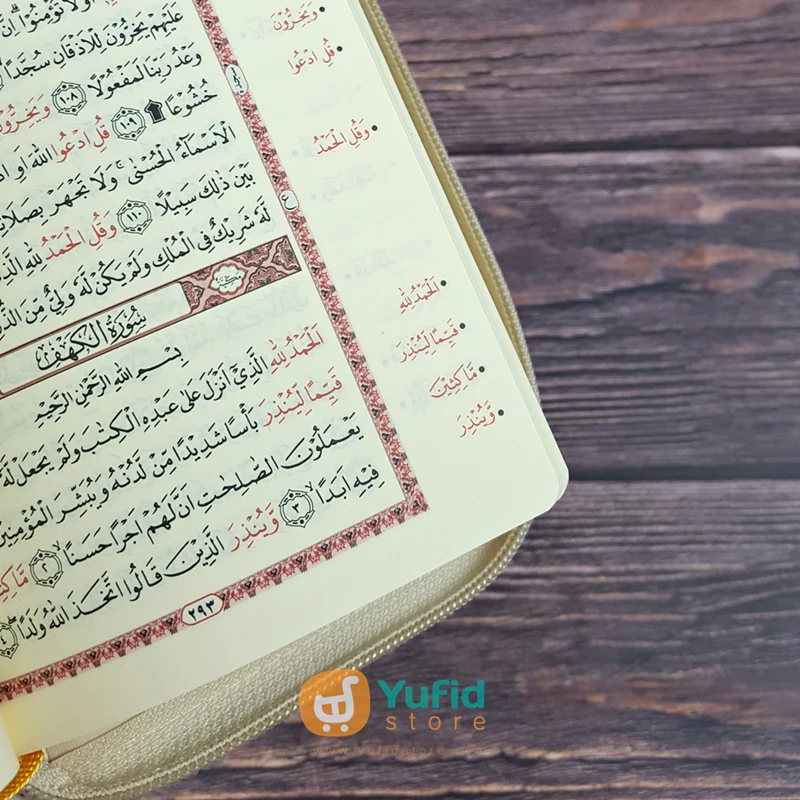 عَلَيْهِمْ يَخِرُّوْنَ لِلْاَذْقَانِ سُجَّدًا
وَعْدُ رَبِّنَا لَمَفْعُوْلًا ١٠٨ وَيَخِرُّوْنَ
خُشُوْعًا ١٠٩ قُلِ ادْعُوا اللّٰهَ اَوِ
الْاَسْمَاۤءُ الْحُسْنٰىۚ وَلَا تَجْهَرْ بِصَلَاتِكَ
بَيْنَ ذٰلِكَ سَبِيْلًا ١١٠ وَقُلِ الْحَمْدُ لِلّٰهِ الَّذِيْ
لَّهٗ شَرِيْكٌ فِى الْمُلْكِ وَلَمْ يَكُنْ لَّهٗ وَلِيٌّ مِّنَ الذُّلِّ
سُوْرَةُ الْكَهْفِ
مَكِّيَّة
بِسْمِ اللّٰهِ الرَّحْمٰنِ الرَّحِيْمِ
اَلْحَمْدُ لِلّٰهِ الَّذِيْٓ اَنْزَلَ عَلٰى عَبْدِهِ الْكِتٰبَ وَلَمْ يَجْعَلْ لَّهٗ
قَيِّمًا لِّيُنْذِرَ بَأْسًا شَدِيْدًا مِّنْ لَّدُنْهُ وَيُبَشِّرَ الْمُؤْمِنِيْنَ
يَعْمَلُوْنَ الصّٰلِحٰتِ اَنَّ لَهُمْ اَجْرًا حَسَنًا ٢ مَّاكِثِيْنَ
فِيْهِ اَبَدًا ٣ وَّيُنْذِرَ الَّذِيْنَ قَالُوا اتَّخَذَ اللّٰهُ وَلَدًا ٤
٢٩٣
وَيَخِرُّوْنَ
قُلِ ادْعُوا
وَقُلِ الْحَمْدُ
اَلْحَمْدُ لِلّٰهِ
قَيِّمًا لِّيُنْذِرَ
مَّاكِثِيْنَ
وَّيُنْذِرَ
ع
Yufid
store
www.yufidstore.com